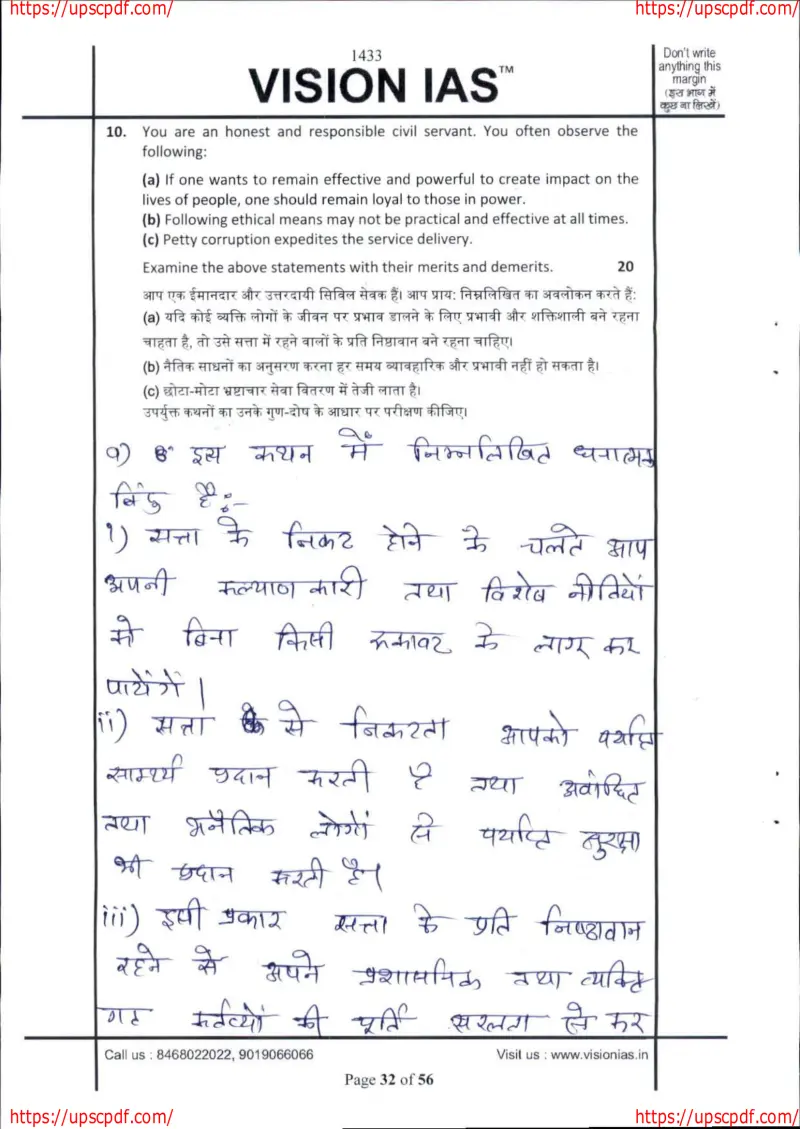 https://upscpdf.com/ https://upscpdf.com/
1433
VISION IAS™
Don't write
anything this
margin
(इस भाग में
कुछ ना लिखें)
10. You are an honest and responsible civil servant. You often observe the
following:
(a) If one wants to remain effective and powerful to create impact on the
lives of people, one should remain loyal to those in power.
(b) Following ethical means may not be practical and effective at all times.
(c) Petty corruption expedites the service delivery.
Examine the above statements with their merits and demerits. 20
आप एक ईमानदार और उत्तरदायी सिविल सेवक हैं। आप प्राय: निम्नलिखित का अवलोकन करते हैं:
(a) यदि कोई व्यक्ति लोगों के जीवन पर प्रभाव डालने के लिए प्रभावी और शक्तिशाली बने रहना
चाहता है, तो उसे सत्ता में रहने वालों के प्रति निष्ठावान बने रहना चाहिए।
(b) नैतिक साधनों का अनुसरण करना हर समय व्यावहारिक और प्रभावी नहीं हो सकता है।
(c) छोटा-मोटा भ्रष्टाचार सेवा वितरण में तेजी लाता है।
उपर्युक्त कथनों का उनके गुण-दोष के आधार पर परीक्षण कीजिए।
a) इस कथन में निम्नलिखित धनात्मक
बिंदु हैं:-
i) सत्ता के निकट होने के चलते आप
अपनी कल्याणकारी तथा विशेष नीतियों
को बिना किसी रूकावट के लागू कर
पायेंगें।
ii) सत्ता से निकटता आपको पर्याप्त
सामर्थ्य प्रदान करती है तथा अवांछित
तथा अनैतिक लोगों से पर्याप्त सुरक्षा
भी प्रदान करती है।
iii) इसी प्रकार सत्ता के प्रति निष्ठावान
रहने से अपने प्रशासनिक तथा व्यक्ति
गत कर्तव्यों की पूर्ति सरलता से कर
Call us : 8468022022, 9019066066 Visit us : www.visionias.in
Page 32 of 56
https://upscpdf.com/ https://upscpdf.com/